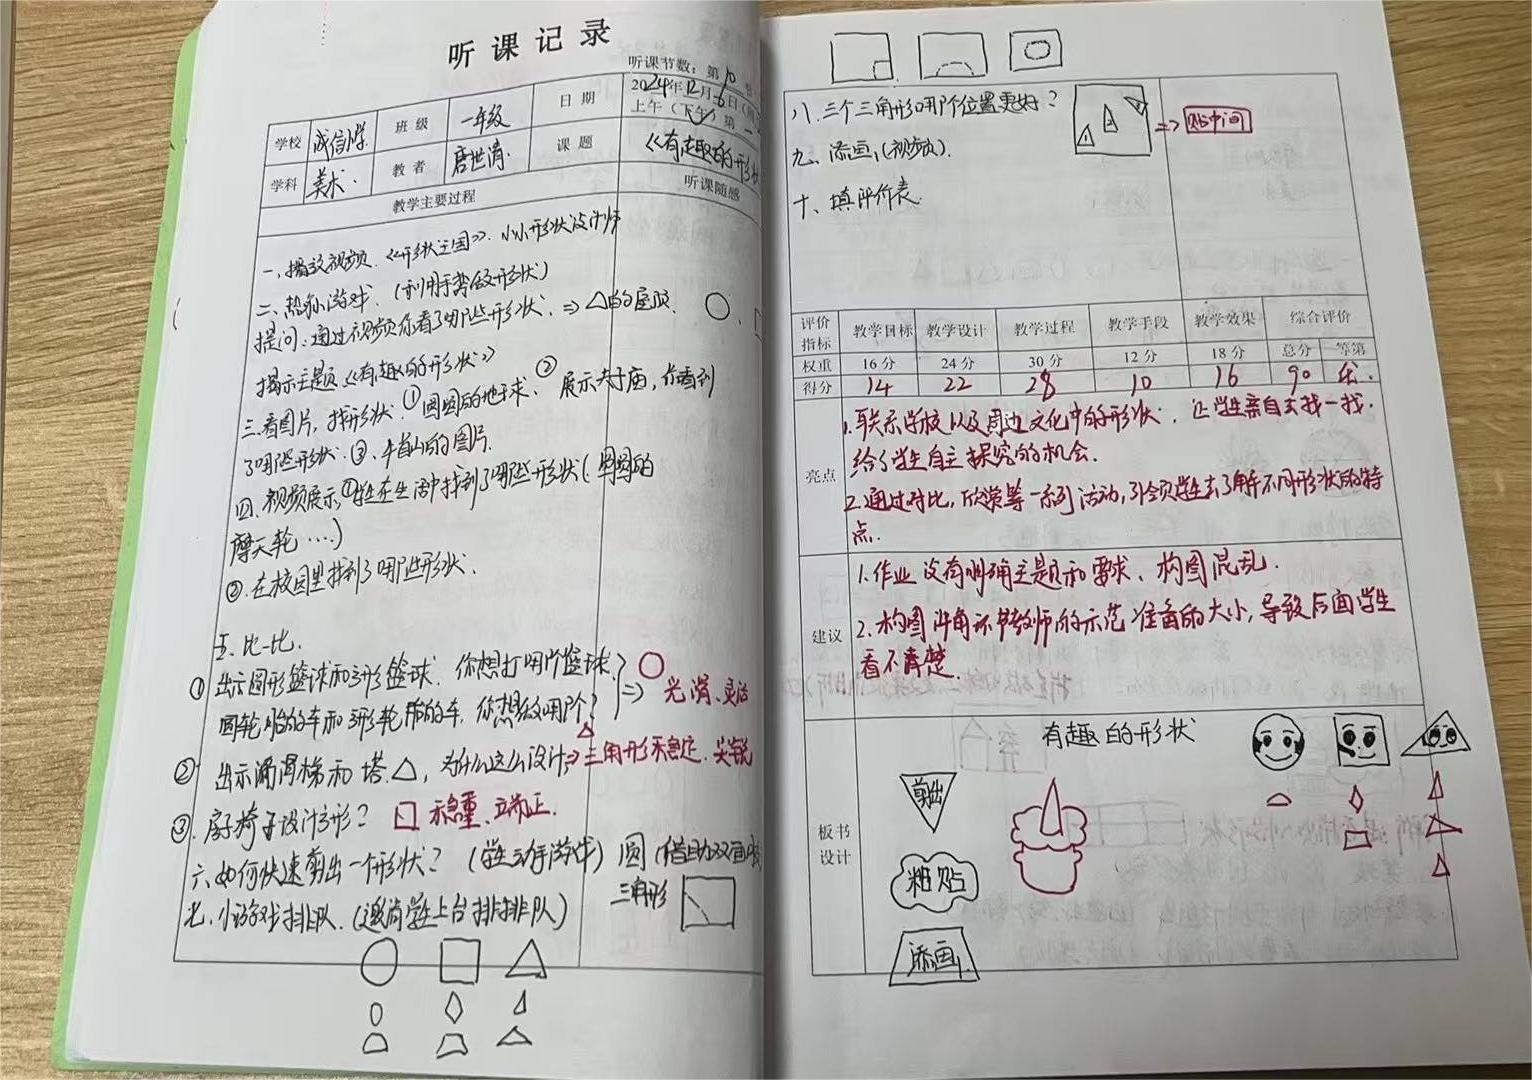 听课记录
听课节数：第10
学校 诚信小学 班级 一年级 日期 2024年12月6日
上午（下午）第一
学科 美术 教者 唐世清 课题 《有趣的形状
教学主要过程 听课随感
一、播放视频《形状王国》. 小小形状设计师
二、热身小游戏.（利用手势做形状）
提问：通过视频你看了哪些形状. ⇒ △的屋顶.
揭示主题《有趣的形状》
三.看图片，找形状. ①圆圆的地球、② 展示夫子庙，你看到
了哪些形状. ③、牛首山的图片.
四、视频展示 ①学生在生活中找到了哪些形状（圆圆的
摩天轮……）
②.在校园里找到了哪些形状.
五. 比一比.
① 出示圆形篮球和方形篮球. 你想打哪个篮球？
⇒ 光滑、灵活
圆轮胎的车和方形轮胎的车，你想做哪个？
② 出示滑滑梯和塔.△，为什么这么设计⇒三角形稳定.尖锐
③. 房子椅子设计方形？ 稳重、端正.
六、如何快速剪出一个形状？（学生动手游戏）圆（借助双面胶
三角形
七、小游戏排队.（邀请学生上台排排队）
八.三个三角形哪个位置更好？ ⇒ 贴中间
九、添画.（视频）.
十、填评价表.
评价指标 教学目标 教学设计 教学过程 教学手段 教学效果 综合评价
权重 16分 24分 30分 12分 18分 总分 等第
得分 14 22 28 10 16 90 优.
亮点
1.联系学校以及周边文化中的形状. 让学生亲自去找一找.
给了学生自主探究的机会.
2.通过对比，欣赏等一系列活动，引领学生去了解不同形状的特
点.
建议
1.作业没有明确主题和要求、构图混乱.
2.构图讲解环节教师的示范准备的大小，导致后面学生
看不清楚.
板书设计
有趣的形状
剪出
粘贴
添画